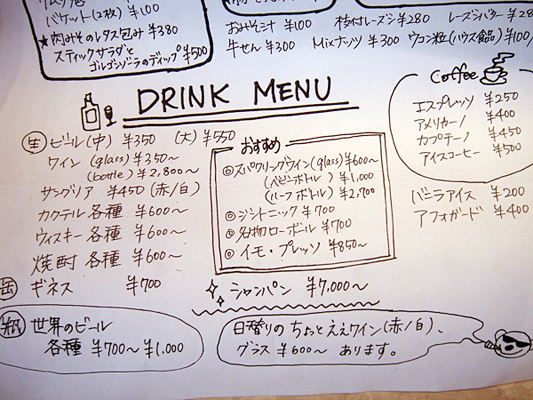 バケット(2枚) ¥100
★肉みそのレタス包み ¥380
スティックサラダと
ゴルゴンゾーラのディップ ¥500
おみそ汁 ¥100
枝付レーズン ¥280
レーズンバター ¥28
牛せん ¥300
Mixナッツ ¥300
ウコン粒(ハウス食品) ¥100/
DRINK MENU
生 ビール(中) ¥350 (大) ¥550
ワイン (glass) ¥350～
(bottle) ¥2,800～
サングリア ¥450 (赤/白)
カクテル 各種 ¥600～
ウィスキー 各種 ¥600～
焼酎 各種 ¥600～
缶 ギネス ¥700
瓶 世界のビール
各種 ¥700～¥1,000
おすすめ
◎スパークリングワイン(glass) ¥600～
(ベビーボトル) ¥1,000
(ハーフボトル) ¥2,700
◎ジントニック ¥700
◎名物ローボール ¥700
◎イモ・プレッソ ¥850～
シャンパン ¥7,000～
日替りのちょっとええワイン(赤/白)、
グラス ¥600～ あります。
Coffee
エスプレッソ ¥250
アメリカーノ ¥400
カプチーノ ¥450
アイスコーヒー ¥500
バニラアイス ¥200
アフォガード ¥400